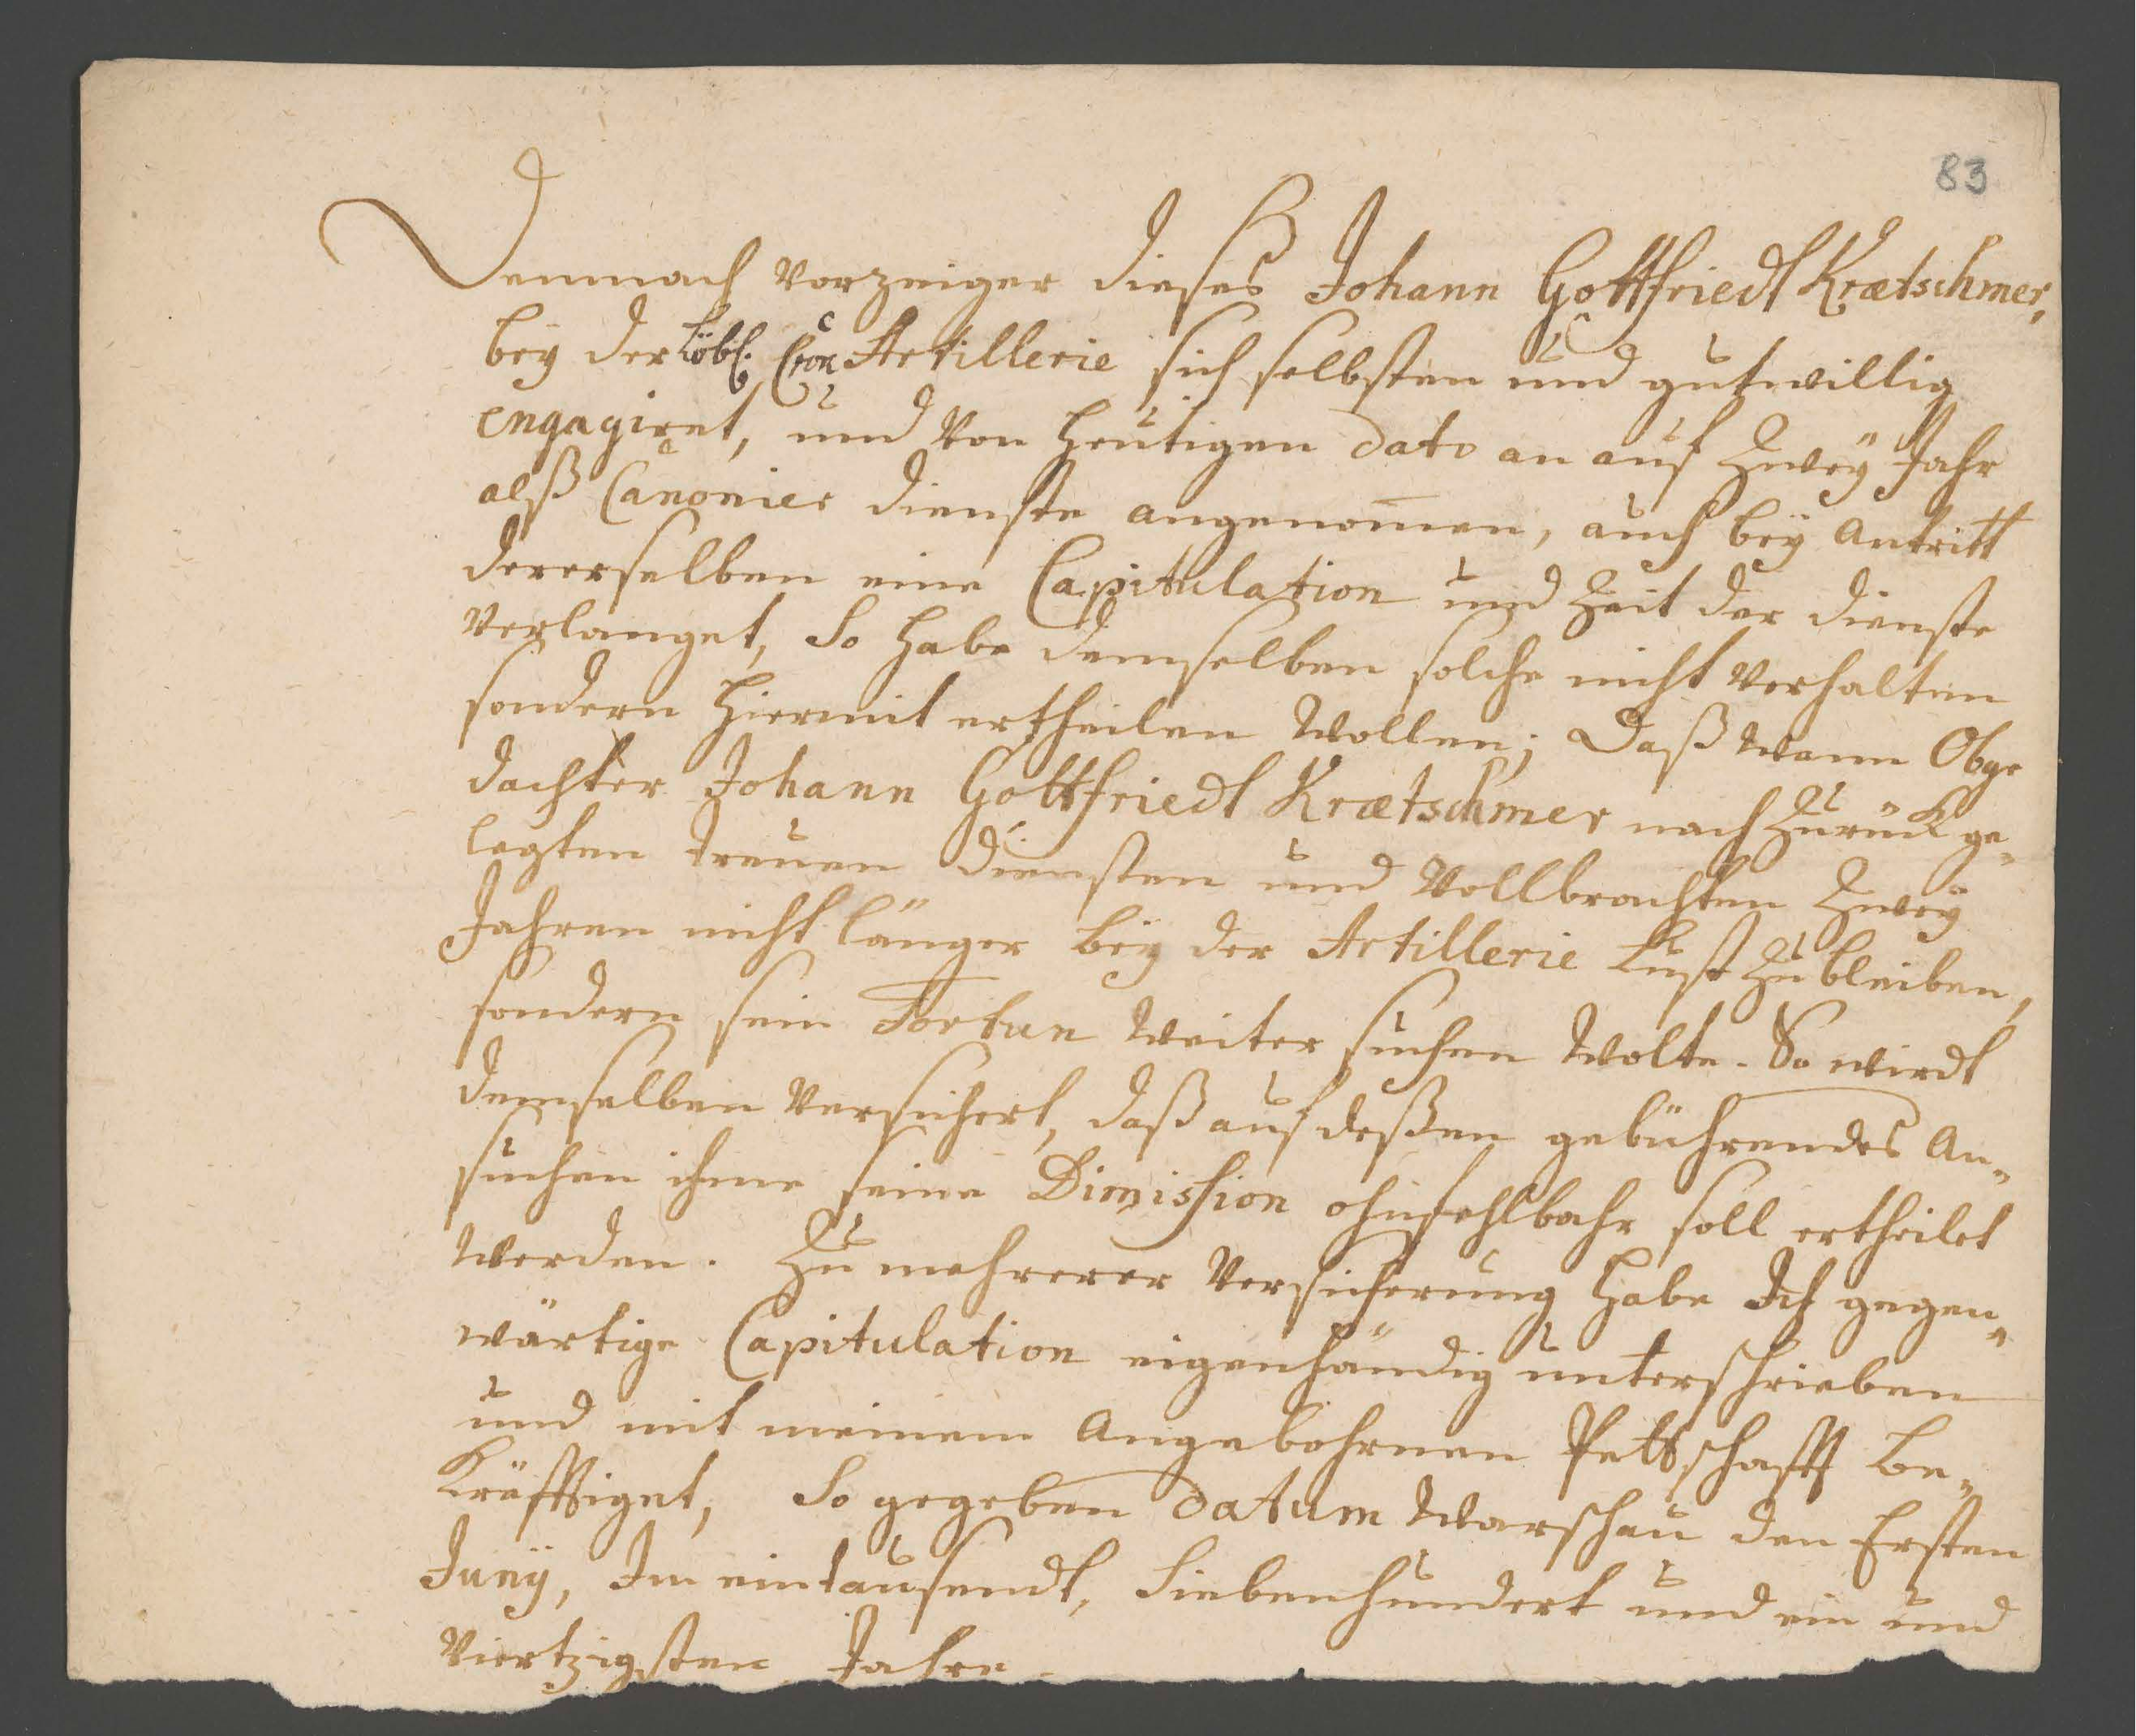 83
Demnach Vorzeiger dieses Johann Gottfriedt Krætschmer,
bey der Löbl. Cron Artillerie sich selbsten und gutwillig
engagiret, und Von heutigen dato an auf Zweÿ Jahr
alß Canonier dienste angenom̅en, auch beÿ Antritt
dererselben eine Capitulation und Zeit der dienste
Verlanget, So habe demselben solche nicht Verhalten
sondern hiermit ertheilen Wollen; Daß Wann Obge
dachter Johann Gottfriedt Krætschmer nach Zurück ge„
legten treuen diensten und Vollbrachten Zweÿ
Jahren nicht länger beÿ der Artillerie Lust Zu bleiben,
sondern sein Fortun Weiter suchen Wolte. So wirdt
demselben Versichert, daß auf deßen gebührendes An„
suchen ihme seine Dimission ohnfehlbahr soll ertheilet
Werden. Zu mehrerer Versicherung habe Ich gegen„
wärtige Capitulation eigenhändig unterschrieben
und mit meinem Angebohrnen Pettschafft Be„
kräfftiget, So gegeben Datum Warschau den Ersten
Junÿ, Im eintausendt, Siebenhundert und ein und
Viertzigsten Jahre.